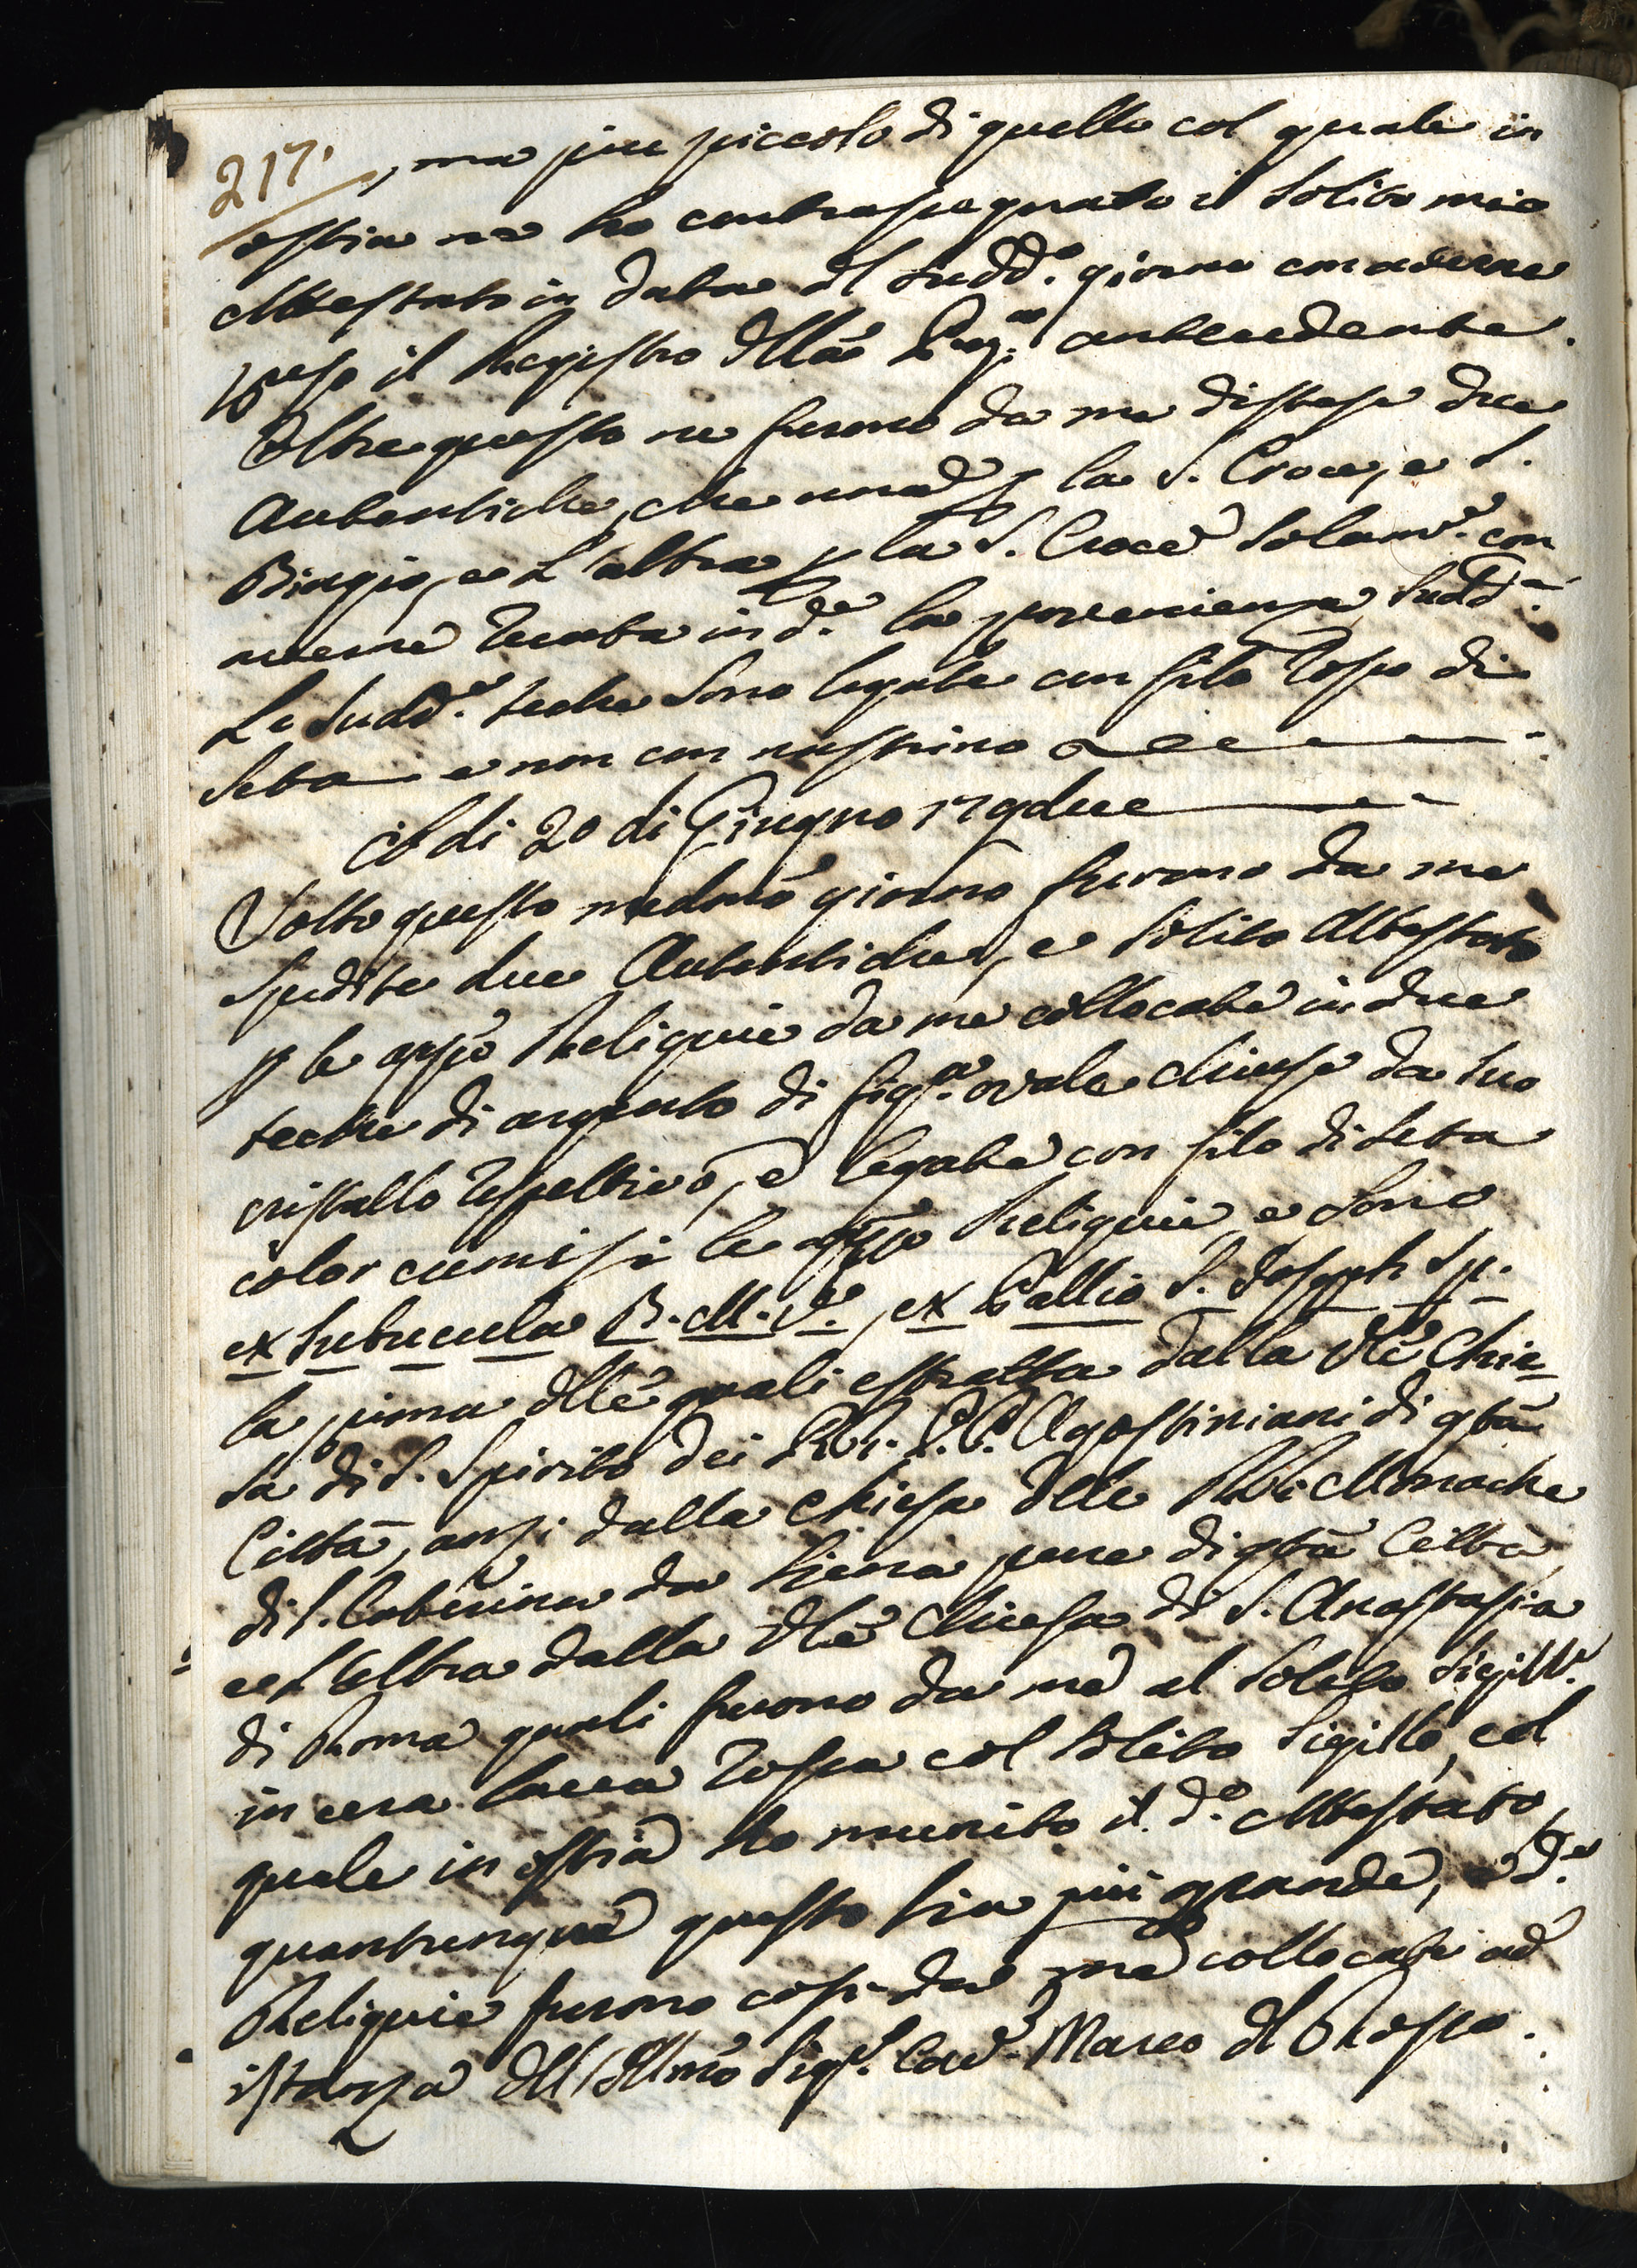 217.
, ma più piccolo di quello col quale in
ostia ne ho contrasegnato il solito mio
Attestato in data del sudd.º giorno con averne
preso il Registro dllã Pag.ª antecedente.
Oltre questo ne furono da me distese due
Autentiche, che una p la S. Croce, e S.
Biagio, e l'altra p la S. Croce solam.e con
averne tenuta in d.e la provenienza sudd.a
Le sudd.e teche sono legate con filo rosso di
seta e non con nastrino
A dì 20 di Giugno 179due
Sotto questo medmõ giorno furono da me
spedite due Autentiche, e solito Attestato
p le appõ Reliquie da me collocate in due
teche di argento di fig.a ovale chiuse da suo
cristallo respettivo, e legate con filo di seta
color cremisi le appõ Reliquie, e sono
ex subucula B. M. V.e, ex Pallio S. Joseph Sp.
la prima dllẽ quali estratta dalla Vlẽ Chie=
sa di S. Spirito dei RR. P.P. Agostiniani di qtã
Città, anzi dalla Chiesa dlle RR. Monache
di S. Caterina da Siena pure di qtã Città,
e l'altra dalla Vlẽ Chiesa di S. Anastasia
di Roma quali furono da me al solito sigill.e
in cera lacca rossa col solito sigillo, col
quale in ostia ho munito il d.º Attestato,
quantunque questo sia più grande, e d.e
Reliquie furono così da me collocate ad
istanza dll'Illmõ Sig.r Cav.e Marco dl Rosso.